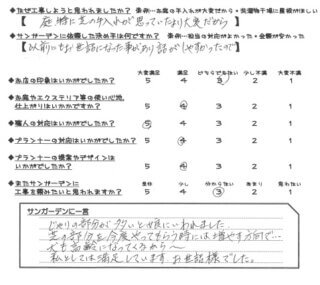 ◆なぜ工事しようと思われましたか? 条例…お庭の手入れが大変だから・洗濯物干場に屋根がほしい
【庭 特に芝の手入れが思っていたより大変だから】
◆サンガーデンに依頼した決め手は何ですか? 条例…担当の対応がよかった・金額が安かった
【以前にもお世話になった事があり話がしやすかったので】
大変満足 満足 どちらでもない 少し不満 大変不満
◆お店の印象はいかがでしたか? 5 4 3 2 1
◆お庭やエクステリア等の使い心地、
仕上がりはいかがですか? 5 4 3 2 1
◆職人の対応はいかがでしたか? 5 4 3 2 1
◆プランナーの対応はいかがでしたか? 5 4 3 2 1
◆プランナーの提案やデザインは
いかがでしたか? 5 4 3 2 1
是非 少し 分からない あまり 思わない
◆またサンガーデンに
工事を頼みたいと思われますか? 5 4 3 2 1
サンガーデンに一言
じゃりの部分が多いと娘にいわれました。
芝の部分を今度やってもらう時には増やす方向で…
犬も高齢になってくるから〜
私としては満足しています お世話様でした。